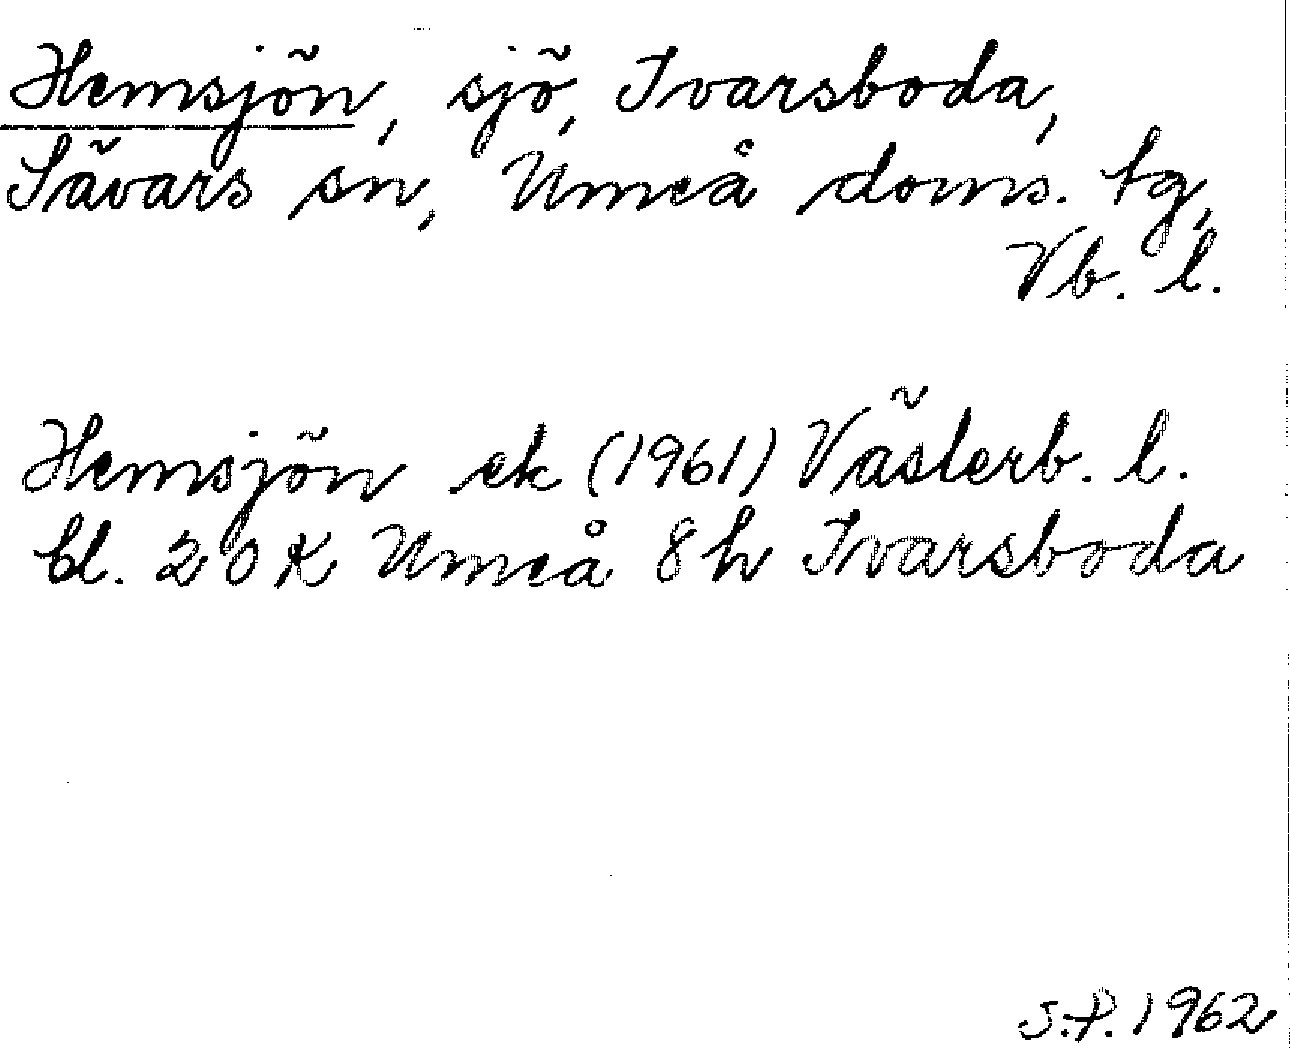 Hemsjön, sjö, Ivarsboda,
Sävars sn, Umeå doms. tg,
Vb. l.
Hemsjön ek (1961) Västerb. l.
bl. 20 K Umeå 8h Ivarsboda
S.P. 1962